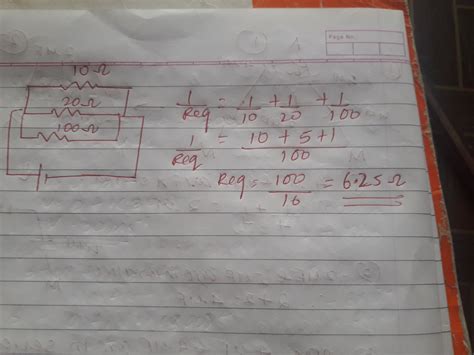 Page No.
10Ω
20Ω
100Ω
1/Req = 1/10 + 1/20 + 1/100
1/Req = 10 + 5 + 1/100
Req = 100/16 = 6.25Ω